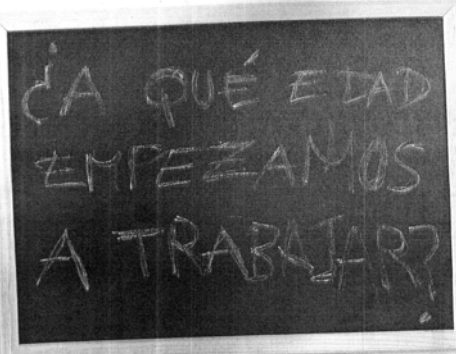 ¿A QUÉ EDAD
EMPEZAMOS
A TRABAJAR?